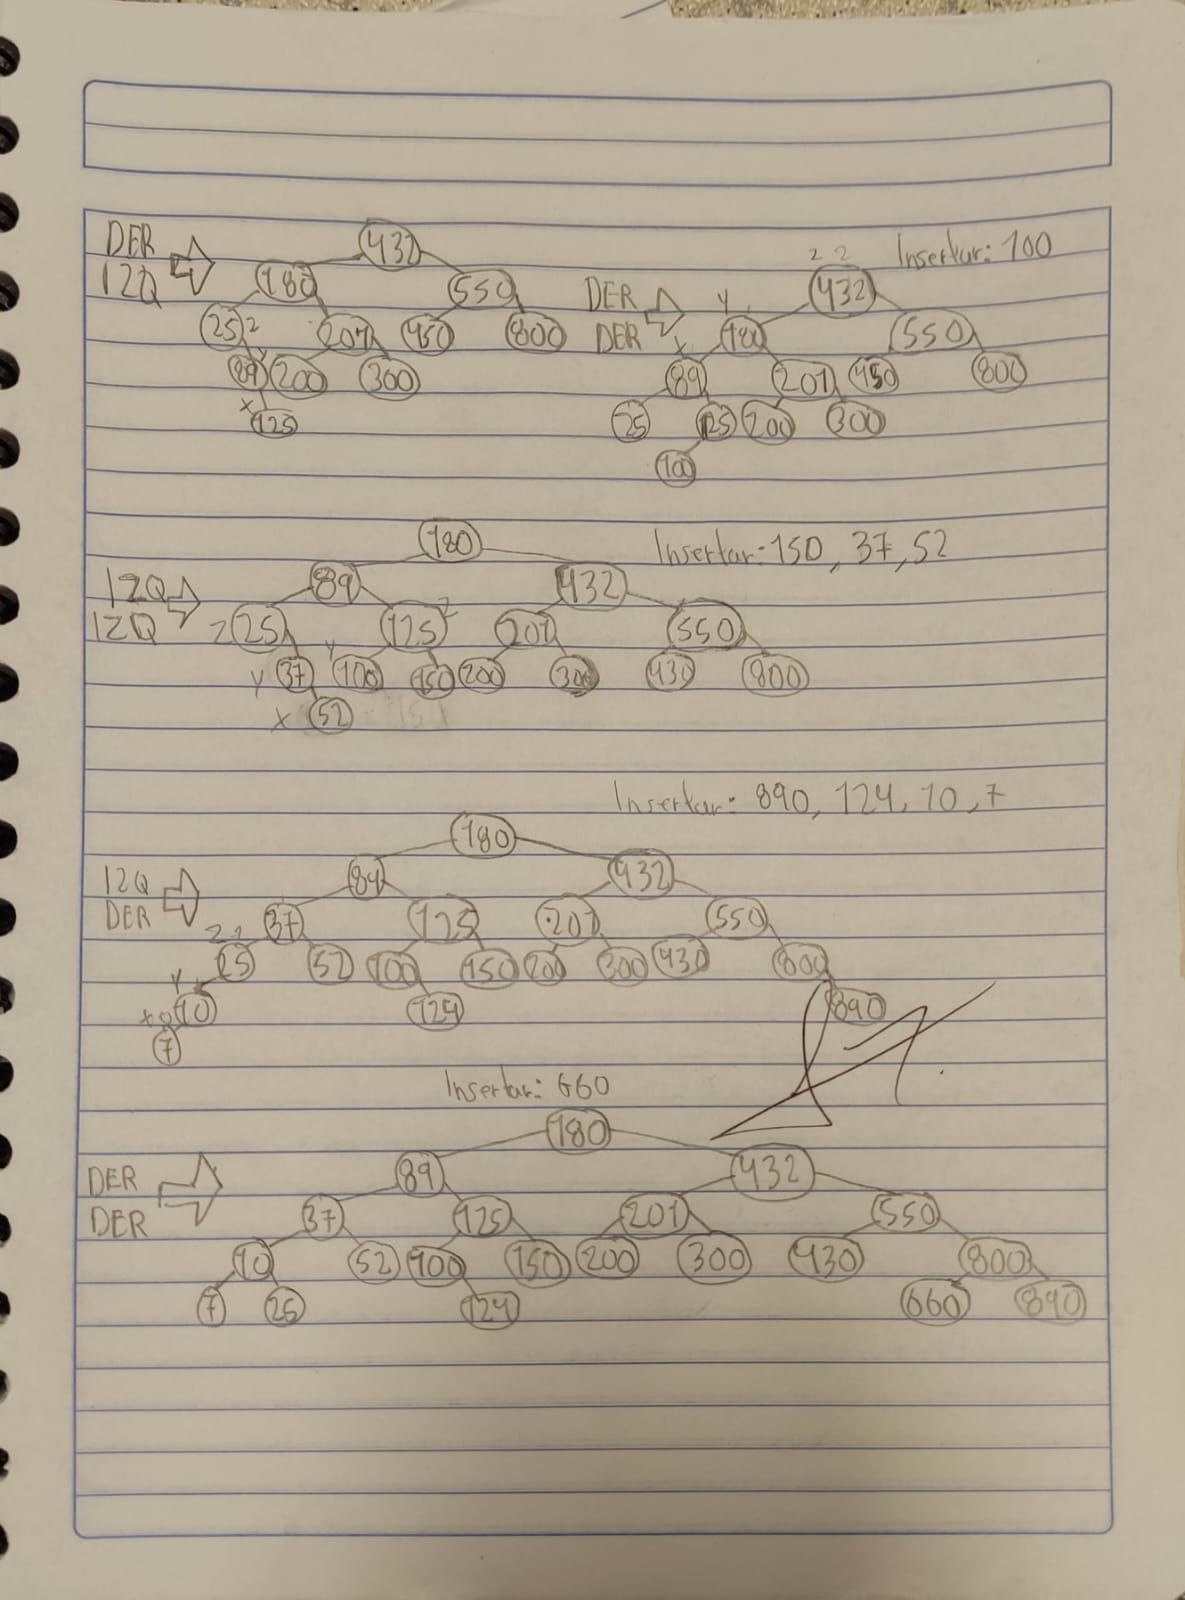 DER
IZQ
432
180 550
25 2 207 450 800
89 y 200 300
x 125
Insertar: 100
2 2
DER
DER
432
y 180 550
x 89 201 450 800
25 125 200 300
100
Insertar: 150, 37, 52
IZQ
IZQ
180
89 432
z 25 125 z 201 550
y 37 y 100 150 200 300 430 800
x 52
Insertar: 890, 124, 10, 7
IZQ
DER
180
89 432
37 125 201 550
25 52 100 150 200 300 430 800
y 10 124 890
7
Insertar: 660
DER
DER
180
89 432
37 125 201 550
10 52 100 150 200 300 430 800
7 25 124 660 890